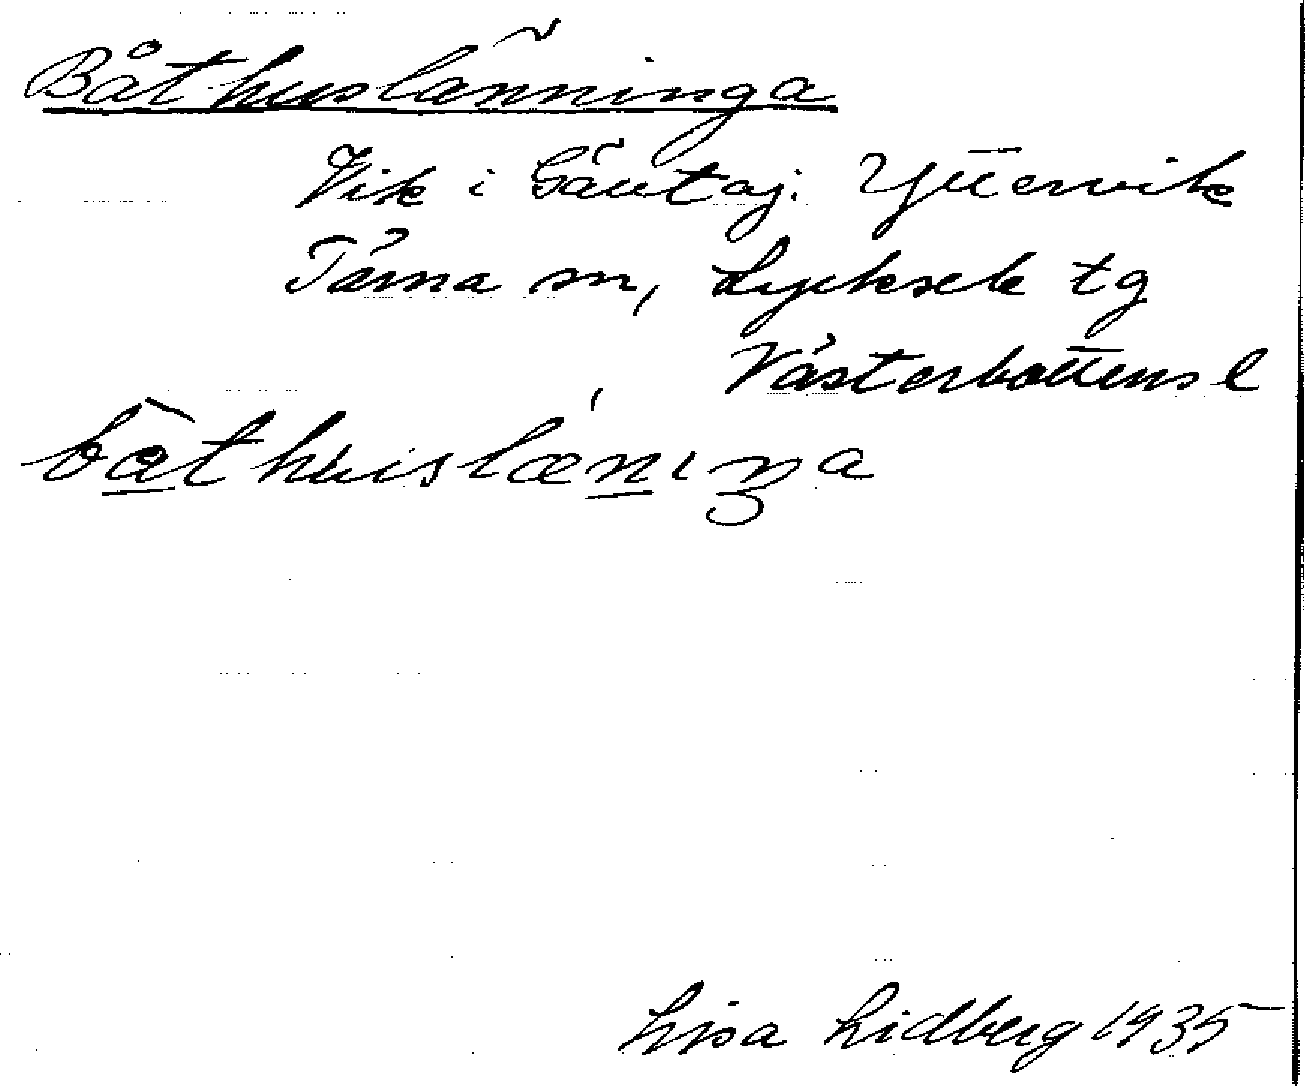 Båthuslänninga
Vik i Gäutaj. Yttervik
Tärna sn, Lycksele tg
Västerbottens l
båthuslæniŋa
Lisa Lidberg 1935